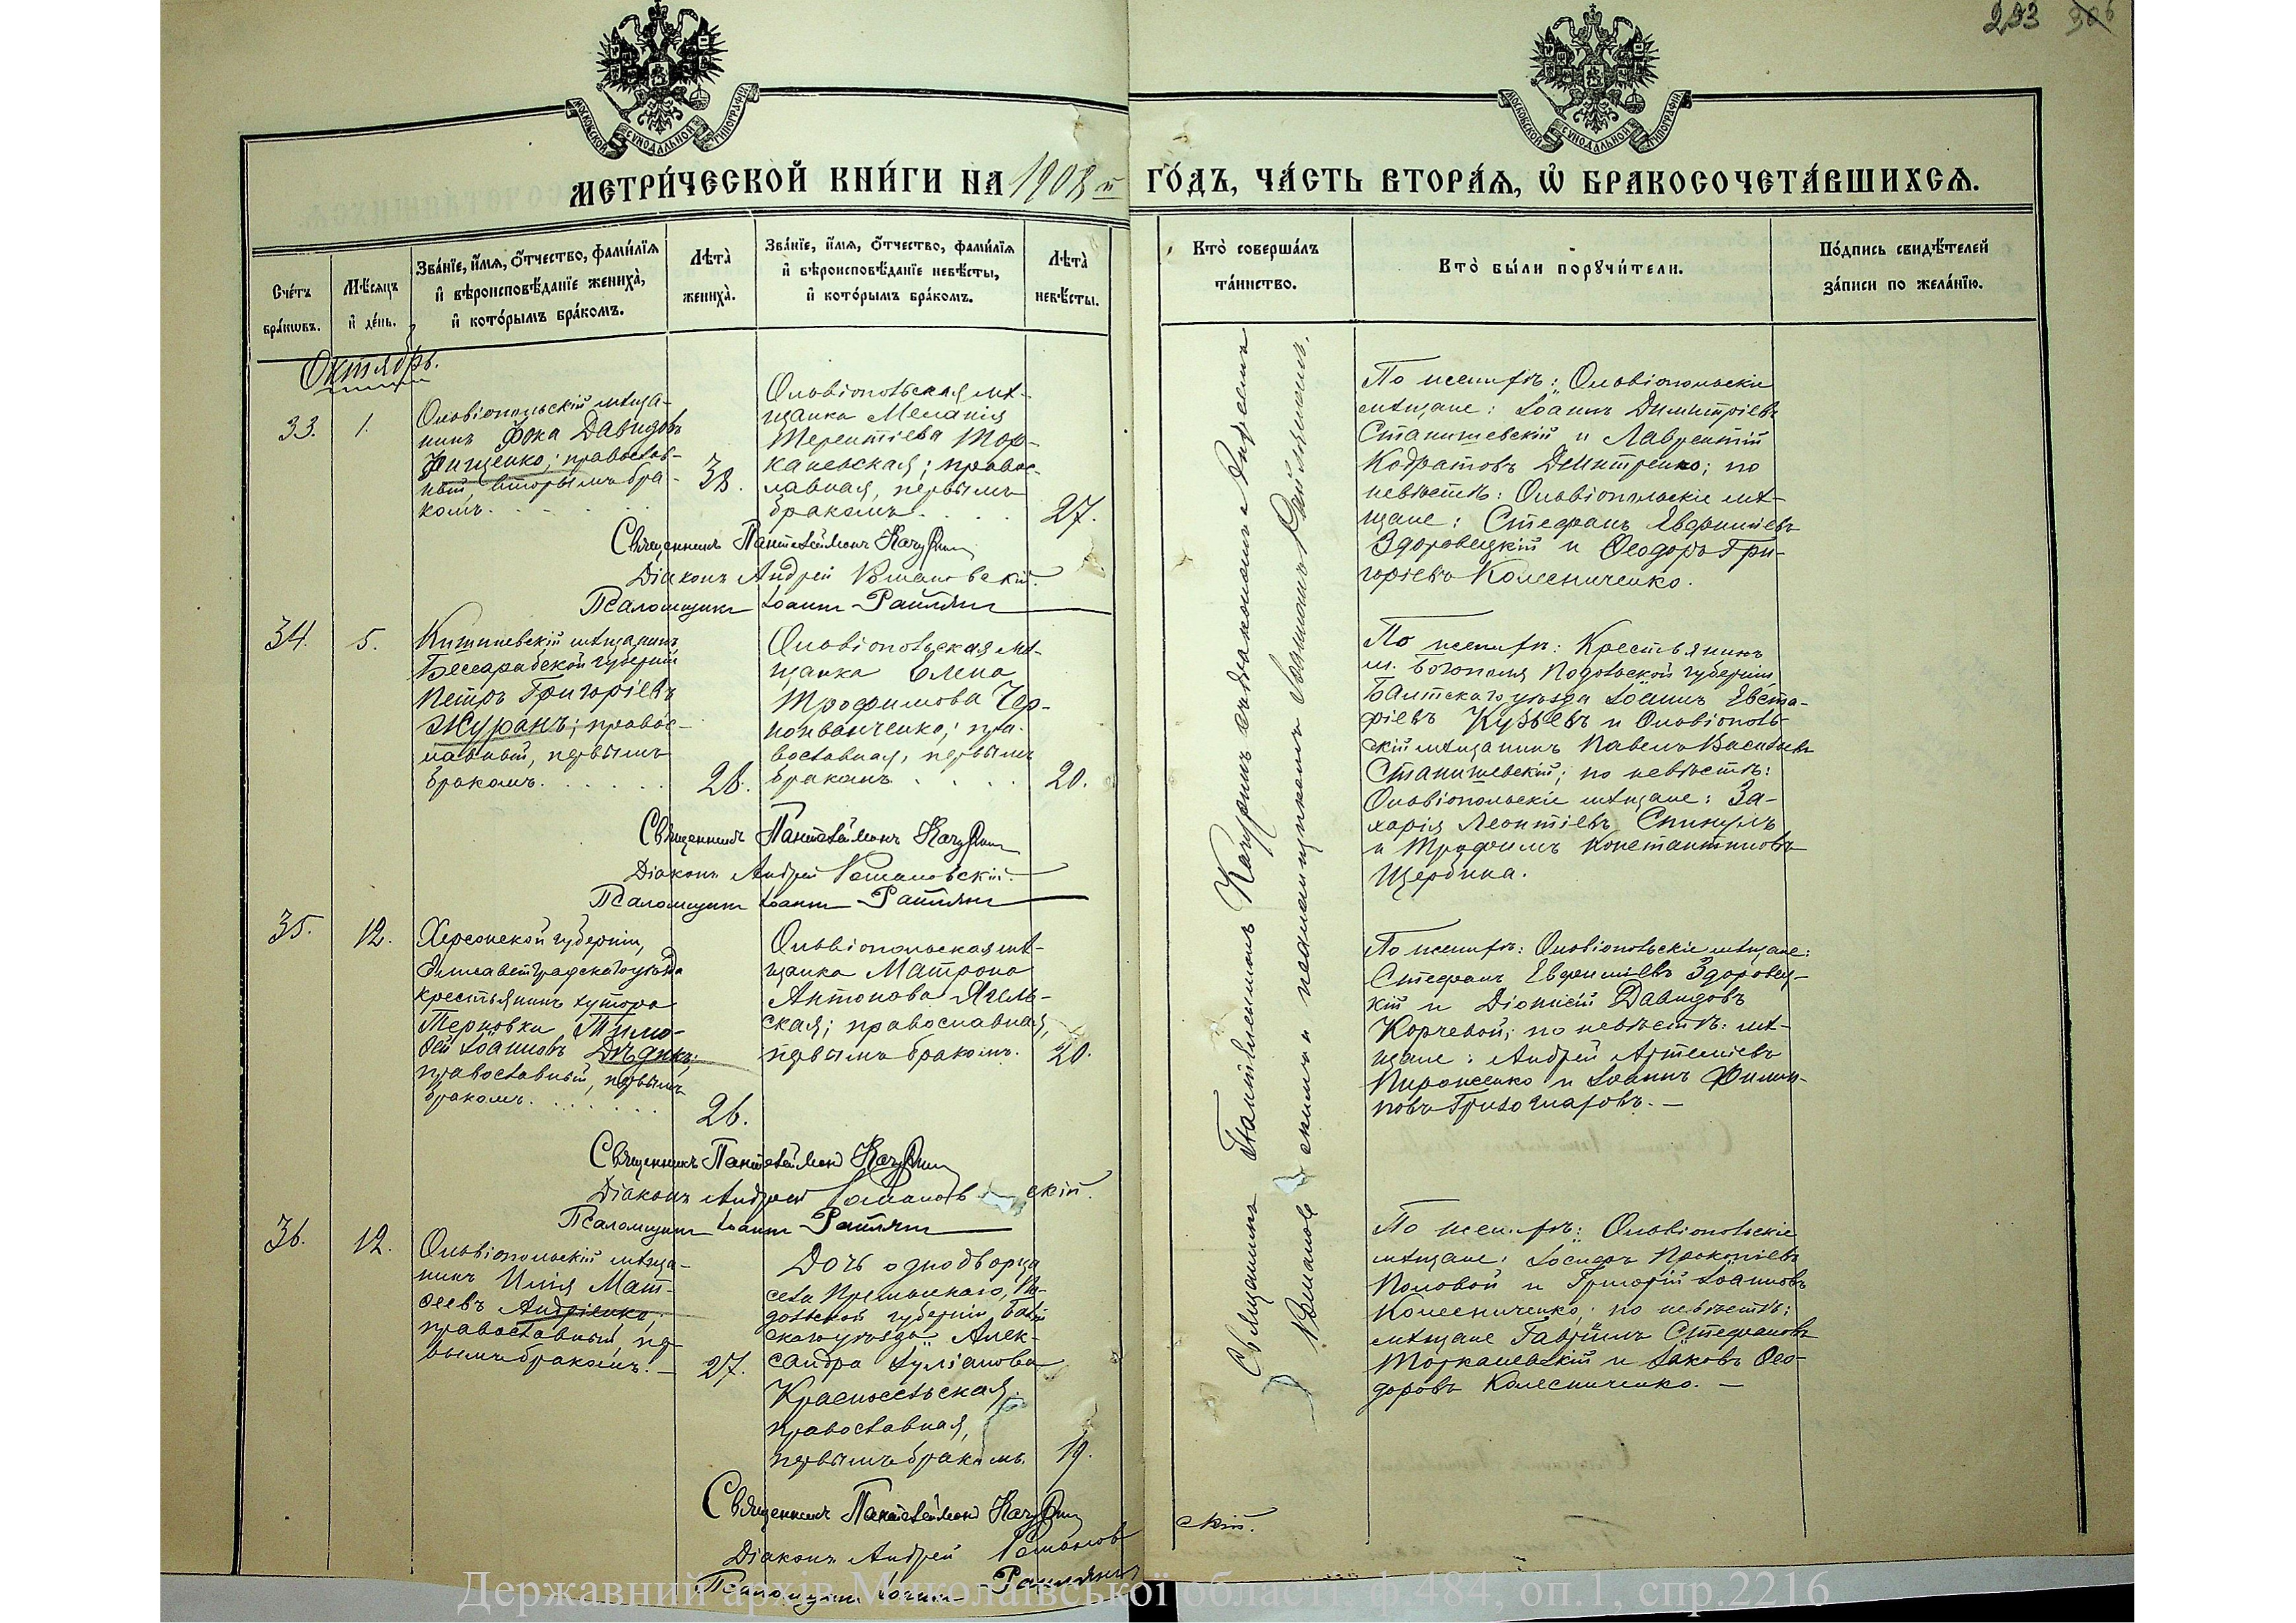 233 306
МОСКОВСКОЙ СѴНОДАЛЬНОЙ ТИПОГРАФІИ
МОСКОВСКОЙ СѴНОДАЛЬНОЙ ТИПОГРАФІИ
МЕТРИ́ЧЕСКОЙ КНИ́ГИ НА 1908й ГО́ДЪ, ЧА́СТЬ ВТОРА́Ѧ, Ѽ БРАКОСОЧЕТА́ВШИХСѦ.
Сче́тъ бра́кѡвъ.
Мѣ́сѧцъ и҆ де́нь.
Зва́нїе, и҆́мѧ, ѻ҆́тчество, фами́лїѧ
и҆ вѣроисповѣ́данїе жениха̀,
и҆ кото́рымъ бра́комъ.
Лѣ́та̀
жениха̀.
Зва́нїе, и҆́мѧ, ѻ҆́тчество, фами́лїѧ
и҆ вѣроисповѣ́данїе невѣ́сты,
и҆ кото́рымъ бра́комъ.
Лѣ́та̀
невѣ́сты.
Кто̀ соверша́лъ
та́инство.
Кто̀ бы́ли порꙋчи́тели.
По́дпись свидѣ́телей
за́писи по жела́нїю.
Октябрь.
33.
1.
Ольвіопольскій мѣща-
нинъ Фока Давидовъ
Фищенко; православ-
ный, вторымъ бра-
комъ.
38.
Ольвіопольская мѣ-
щанка Меланія
Терентіева Тор-
каневская; правос-
лавная, первымъ
бракомъ.
27.
По женихѣ: Ольвіопольскіе
мѣщане: Іоаннъ Димитріевъ
Станишевскій и Лаврентій
Кодратовъ Дмитренко; по
невѣстѣ: Ольвіопольскіе мѣ-
щане: Стефанъ Евфиміевъ
Здоровецкій и Ѳеодоръ Гри-
горіевъ Колесниченко.
Священникъ Пантелеймонъ
Діаконъ Андрей Романовскій.
Псаломщикъ Іоаннъ Райлянъ
34.
5.
Кишиневскій мѣщанинъ
Бессарабской губерніи
Петръ Григоріевъ
Журанъ; правос-
лавный, первымъ
бракомъ.
28.
Ольвіопольская мѣ-
щанка Елена
Трофимова Чер-
ноиванченко; пра-
вославная, первымъ
бракомъ
20.
По женихѣ: Крестьянинъ
м. Богополя Подольской губерніи
Балтскаго уѣзда Іоаннъ Евста-
фіевъ и Ольвіополь-
скій мѣщанинъ Павелъ Васильевъ
Станишевскій; по невѣстѣ:
Ольвіопольскіе мѣщане: За-
харія Леонтіевъ
и Трофимъ Константиновъ
Щербина.
Священникъ Пантелеймонъ
Діаконъ Андрей Романовскій.
Псаломщикъ Іоаннъ Райлянъ
35.
12.
Херсонской губерніи,
Елисаветградскаго уѣзда
крестьянинъ хутора
Терновки Тимо-
ѳей Іоанновъ Дѣдикъ;
православный, первымъ
бракомъ.
26.
Ольвіопольская мѣ-
щанка Матрона
Антонова Ягель-
ская; православная,
первымъ бракомъ.
20.
По женихѣ: Ольвіопольскіе мѣщане:
Стефанъ Евфиміевъ Здоровец-
кій и Діонисій Давидовъ
Корчевой; по невѣстѣ: мѣ-
щане: Андрей Артеміевъ
Пироженко и Іоаннъ Филип-
повъ
Священникъ Пантелеймонъ
Діаконъ Андрей Романовскій.
Псаломщикъ Іоаннъ Райлянъ
36.
12.
Ольвіопольскій мѣща-
нинъ Илія Мат-
ѳеевъ Андріенко;
православный, пер-
вымъ бракомъ.
27.
Дочь однодворца
села Подольской губерніи Балт-
скаго уѣзда Алек-
сандра Іуліанова
Красносельская,
православная,
первымъ бракомъ.
19.
По женихѣ: Ольвіопольскіе
мѣщане: Іосифъ Прокопіевъ
Половой и Григорій Іоанновъ
Колесниченко; по невѣстѣ:
мѣщане Гавріилъ Стефановъ
Торканевскій и Іаковъ Ѳео-
доровъ Колесниченко.
Священникъ Пантелеймонъ
Діаконъ Андрей Романовскій.
Псаломщикъ Іоаннъ Райлянъ
Священникъ Пантелеймонъ съ діакономъ Андреемъ
Романовскимъ и псаломщикомъ Іоанномъ Райляномъ.
Державний архів Миколаївської області ф.484, оп.1, спр.2216